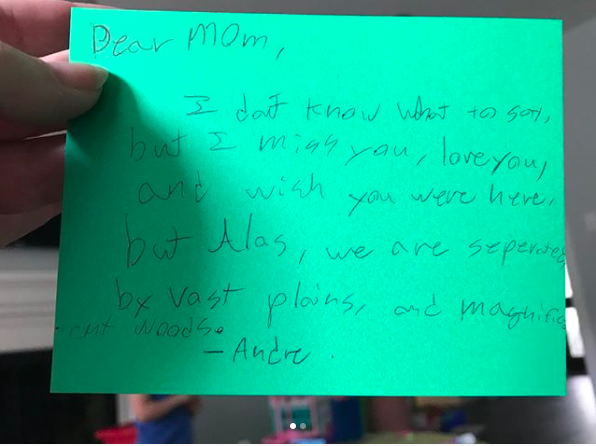 Dear MOm,
I dont know what to say,
but I miss you, love you,
and wish you were here.
but Alas, we are seperated
by vast plains, and magnific
-ent woods.
- Andre.